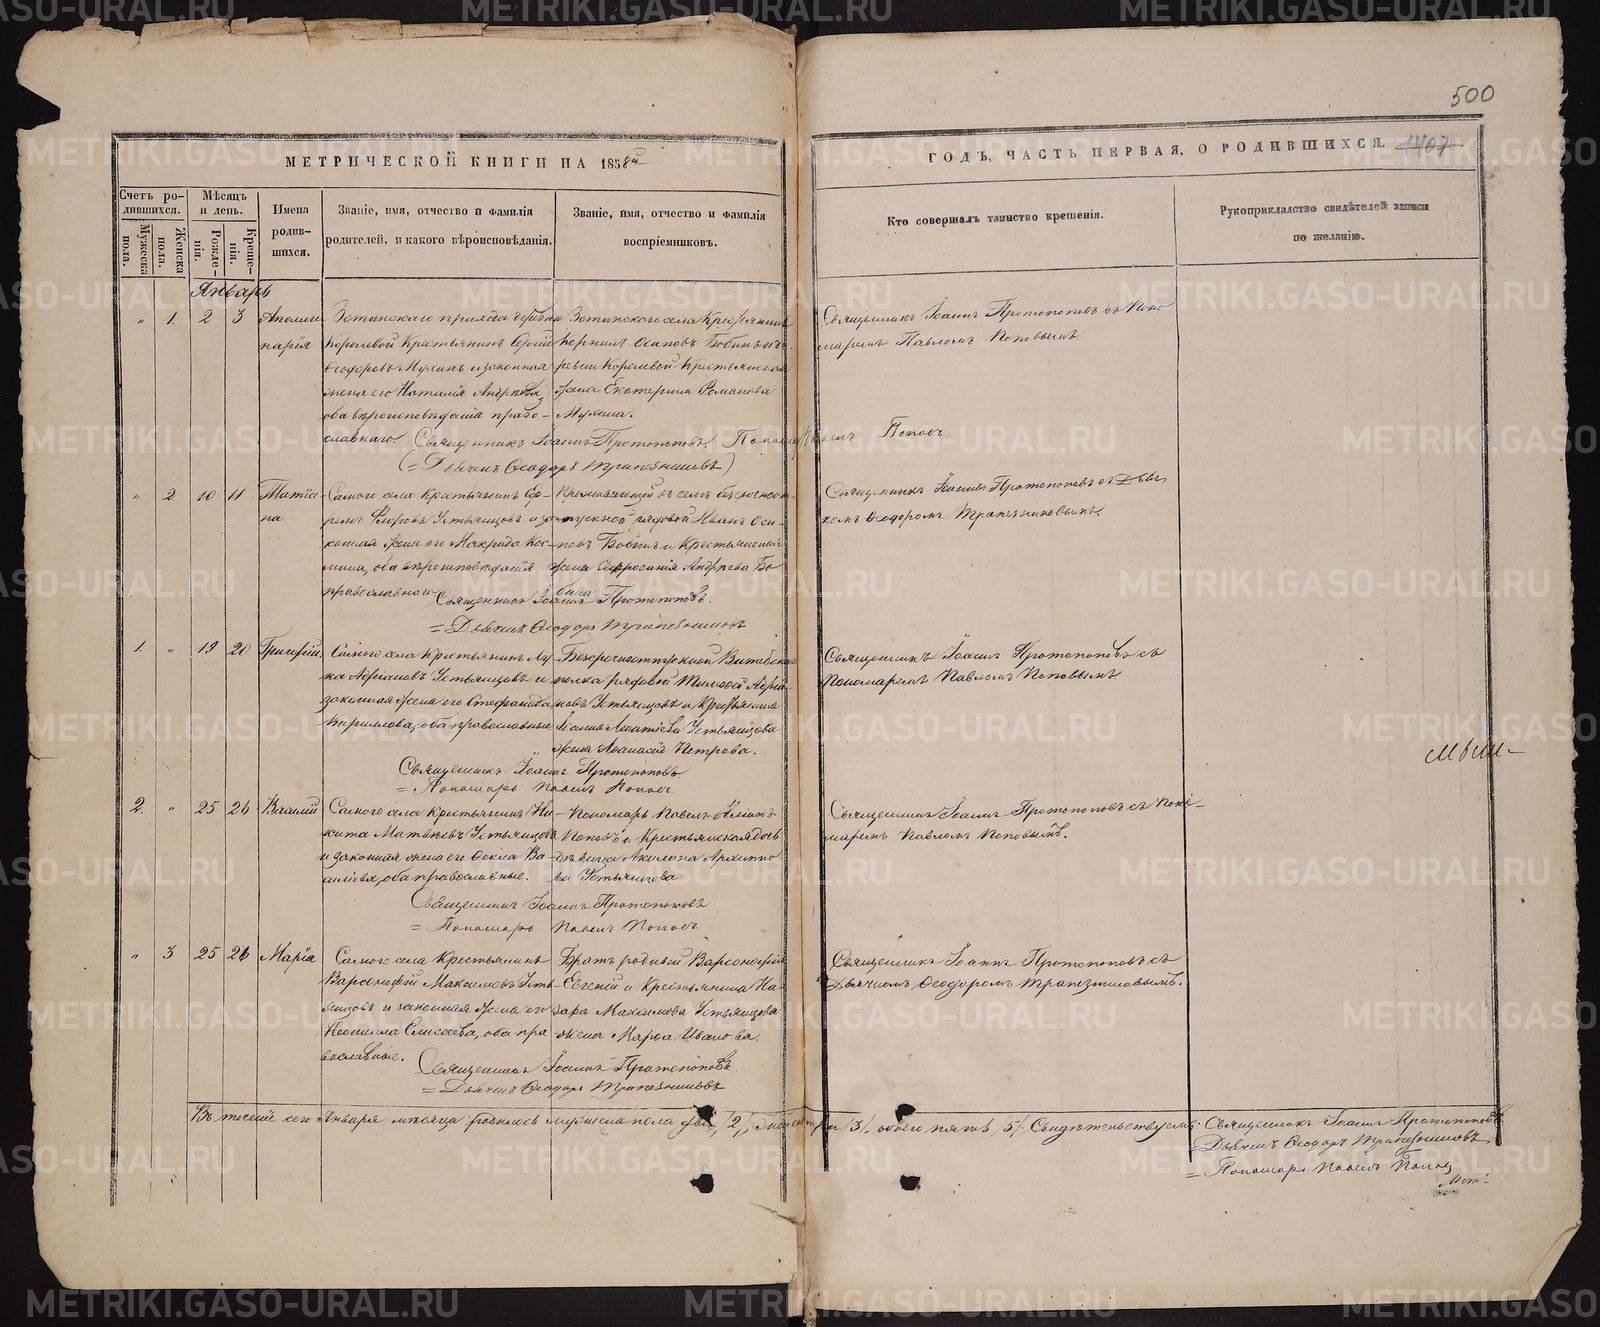 500
МЕТРИЧЕСКОЙ КНИГИ НА 1858й
ГОДЪ, ЧАСТЬ ПЕРВАЯ, О РОДИВШИХСЯ. 1407
Счетъ родившихся.
Мужеска пола.
Женска пола.
Мѣсяцъ и день.
Рожденія.
Крещенія.
Имена родившихся.
Званіе, имя, отчество и фамилія
родителей, и какого вѣроисповѣданія.
Званіе, имя, отчество и фамилія
воспріемниковъ.
Кто совершалъ таинство крещенія.
Рукоприкладство свидѣтелей записи
по желанію.
Январь
" 1. 2 3
Королевой Крестьянинъ Сергій
Ѳеодоровъ Мулинъ и законная
жена его Наталія
оба вѣроисповѣданія право-
славнаго.
Корнилъ Осиповъ Бобинъ и
ревни Королевой Крестьянская
жена Екатерина Романова
Мулина.
Священникъ Іоаннъ Протопоповъ съ Поно-
маремъ Павломъ Поповымъ.
Священникъ Іоаннъ Протопоповъ.
Попов.
Дьячекъ Ѳеодоръ Трапезниковъ
" 2 10 11 Татіа-
на
Самого села Крестьянинъ Еф-
ремъ Устьянцовъ и за-
конная жена его Макрида Кос-
мина, оба вѣроисповѣданія
православнаго
Проживающій въ семъ безсрочноот-
пускной рядовой Иванъ Оси-
повъ Бобинъ и Крестьянская
жена Андреева Бо-
бина.
Священникъ Іоаннъ Протопоповъ съ Дья-
комъ Ѳеодоромъ Трапезниковымъ.
Священникъ Іоаннъ Протопоповъ.
= Дьячекъ Ѳеодоръ Трапезниковъ
1. " 19 20 Григорій.
Самого села Крестьянинъ Лу-
ка Адріановъ Устьянцовъ и
законная жена его Стефанида
Кириллова, оба православные
Безсрочноотпускной Витебскаго
полка рядовой Тимофей Адріа-
новъ Устьянцовъ и Крестьянина
Устьянцова
жена Афанасія Петрова.
Священникъ Іоаннъ Протопоповъ съ
Пономаремъ Павломъ Поповымъ
Священникъ Іоаннъ Протопоповъ
= Пономарь Павелъ Попов.
2. " 25 26 Василій
Самого села Крестьянинъ Ни-
кита Матвѣевъ Устьянцовъ
и законная жена его Ѳекла Ва-
силіева, оба православные.
Пономарь Павелъ
Поповъ и Крестьянская дочь
дѣвица Акилина Архиппо-
ва Устьянцова
Священникъ Іоаннъ Протопоповъ съ Поно-
маремъ Павломъ Поповымъ.
Священникъ Іоаннъ Протопоповъ
= Пономарь Павелъ Попов
" 3 25 26 Марія
Самого села Крестьянинъ
Варсонофій Максимовъ Усть-
янцовъ и законная жена его
Неонилла Елисеева, оба пра-
вославные.
Братъ родный Варсонофія
Евгеній и Крестьянина На-
зара Максимова Устьянцова
жена Марѳа Иванова.
Священникъ Іоаннъ Протопоповъ съ
Дьячкомъ Ѳеодоромъ Трапезниковымъ.
Священникъ Іоаннъ Протопоповъ
= Дьячекъ Ѳеодоръ Трапезниковъ
Въ теченіе сего Января мѣсяца родилось мужеска пола два /2/, /3/, обоего пять /5/. Свидѣтельствуемъ: Священникъ Іоаннъ Протопоповъ
Дьячекъ Ѳеодоръ Трапезниковъ
= Пономарь Павелъ Попов
METRIKI.GASO-URAL.RU